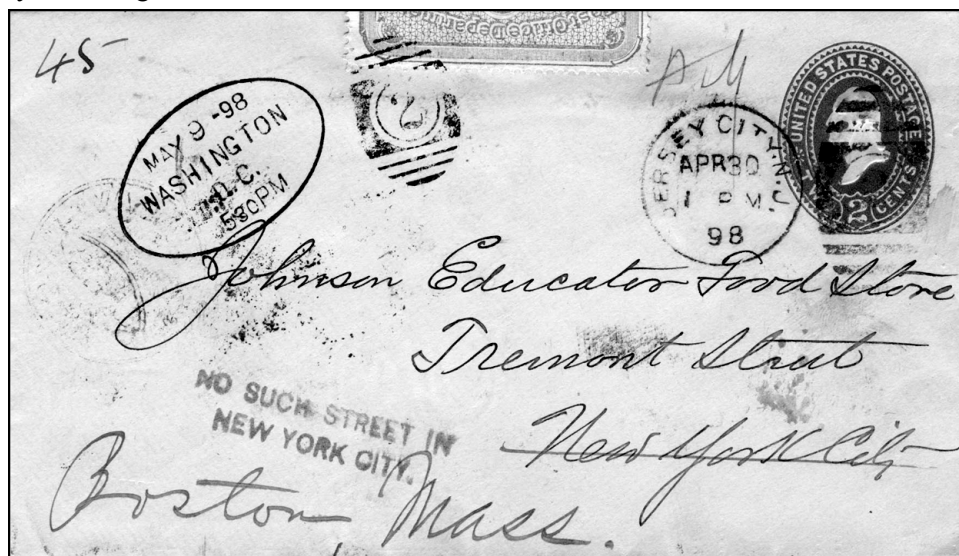 Post Office Department
45
MAY 9-98
WASHINGTON
D.C.
530PM
2
JERSEY CITY, N.J.
APR 30
1 PM
98
UNITED STATES POSTAGE
2 CENTS
Johnson Educator Food Store
Tremont Street
New York City
NO SUCH STREET IN
NEW YORK CITY.
Boston Mass.